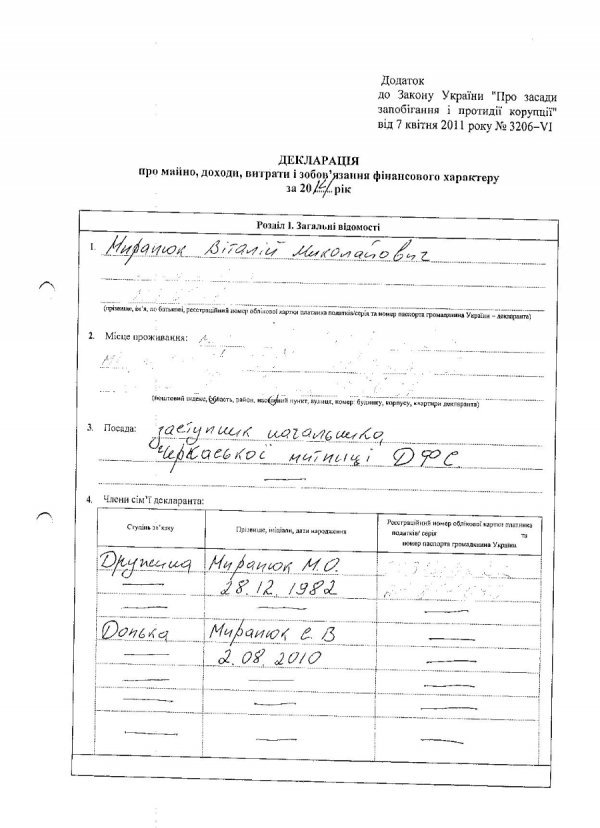 Додаток
до Закону України "Про засади
запобігання і протидії корупції"
від 7 квітня 2011 року № 3206–VI
ДЕКЛАРАЦІЯ
про майно, доходи, витрати і зобов’язання фінансового характеру
за 2014 рік
Розділ I. Загальні відомості
1. Миранюк Віталій Миколайович
(прізвище, ім’я, по батькові, реєстраційний номер облікової картки платника податків/серія та номер паспорта громадянина України – декларанта)
2. Місце проживання:
(поштовий індекс, область, район, населений пункт, вулиця, номер будинку, корпусу, квартири декларанта)
3. Посада: заступник начальника
Черкаської митниці ДФС
4. Члени сім’ї декларанта:
Ступінь зв’язку
Прізвище, ініціали, дата народження
Реєстраційний номер облікової картки платника
податків/ серія та
номер паспорта громадянина України
Дружина Миранюк М.О.
28.12.1982
Донька Миранюк Є.В
2.08.2010